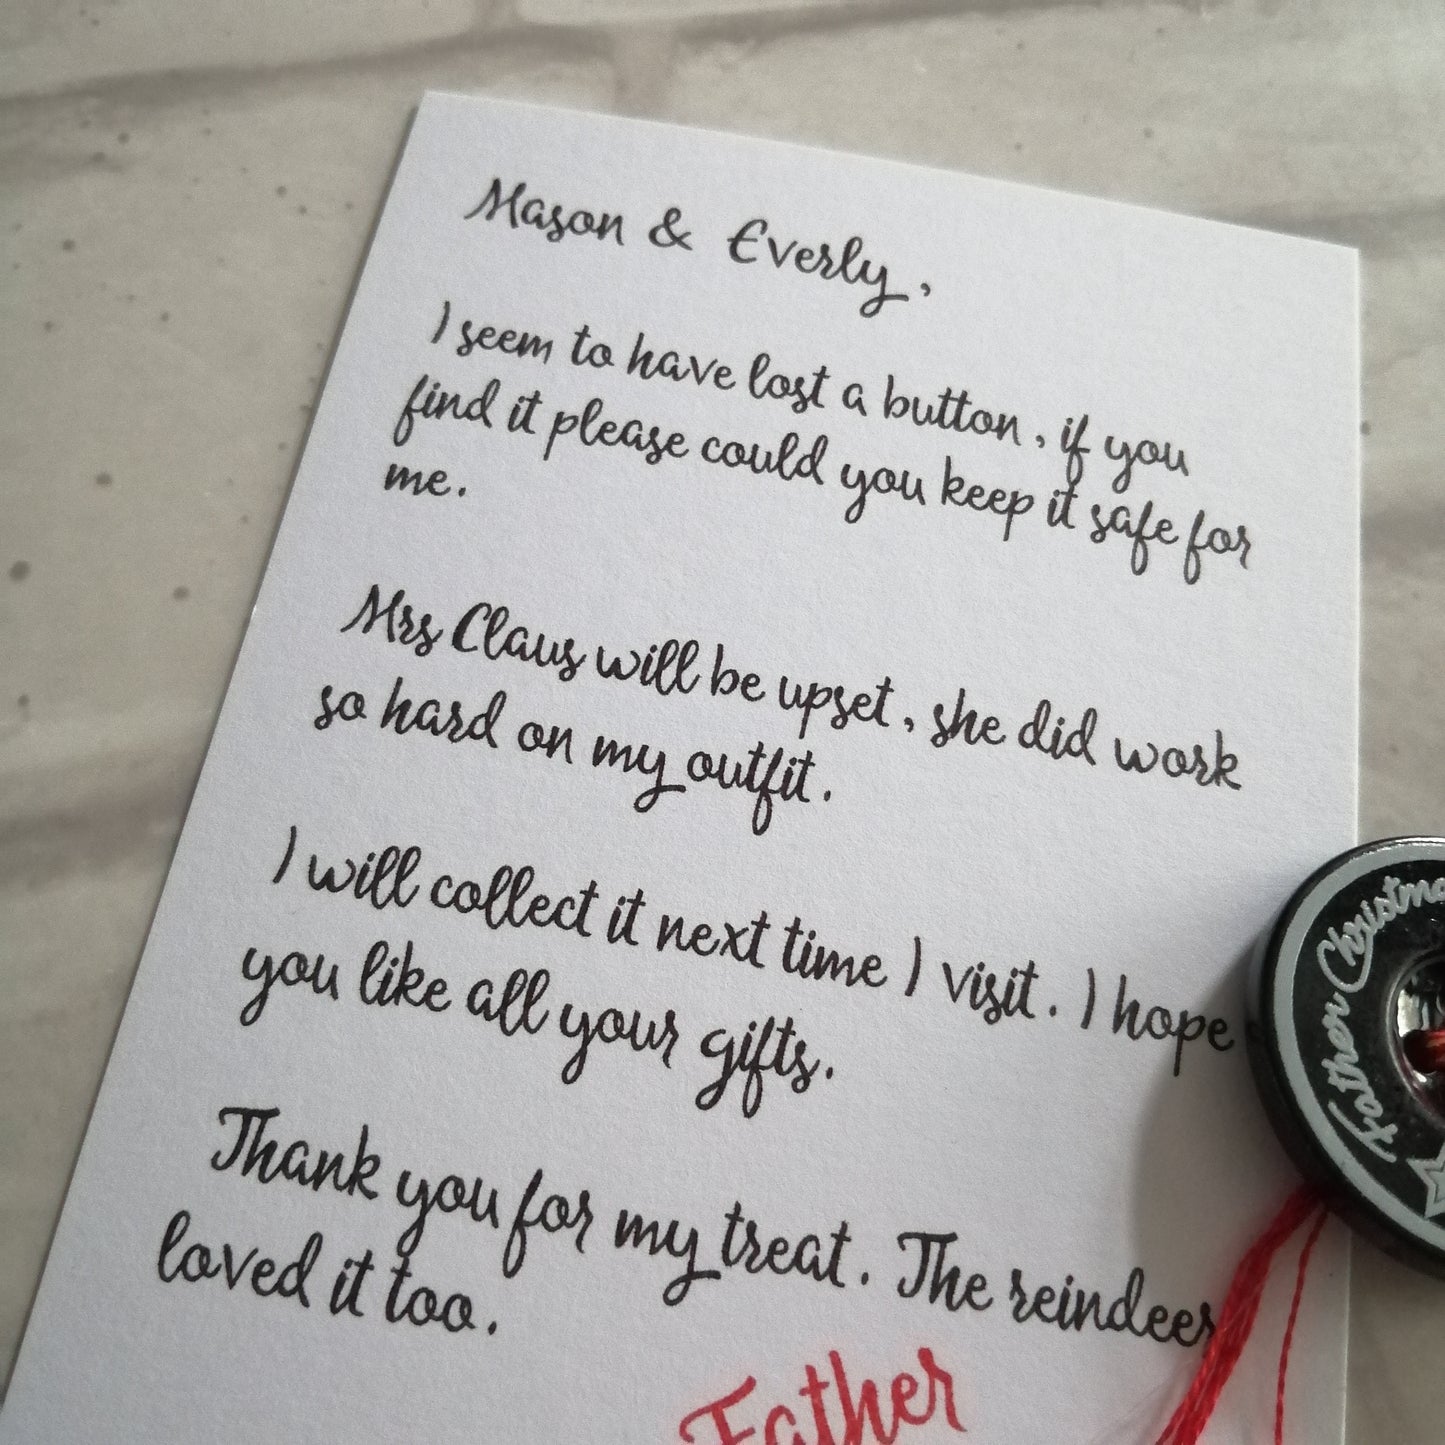 Mason & Everly,
I seem to have lost a button, if you
find it please could you keep it safe for
me.
Mrs Claus will be upset, she did work
so hard on my outfit.
I will collect it next time I visit. I hope
you like all your gifts.
Thank you for my treat. The reindeer
loved it too.
Father
Father Christmas